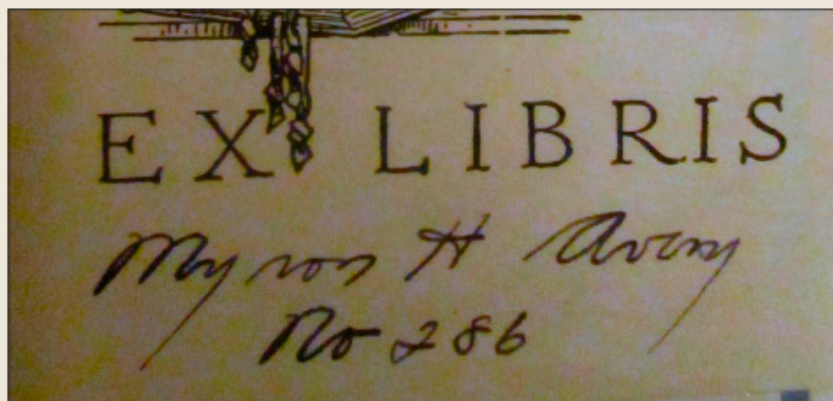 EX LIBRIS
Myron H Avery
No 286